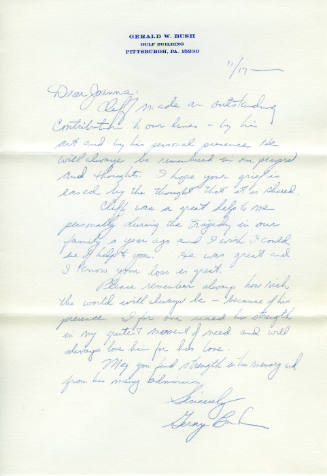 GERALD W. BUSH
GULF BUILDING
PITTSBURGH, PA. 15230
11/17
Dear Joanna:
Cliff made an outstanding
contribution to our lives - by his
art and by his personal presence. He
will always be remembered in our prayers
and thoughts. I hope your grief is
eased by the thought that it is shared.
Cliff was a great help to me
personally during the tragedy in our
family a year ago and I wish I could
be of help to you. He was great and
I know your loss is great.
Please remember always how rich
the world will always be - because of his
presence. I for one used his strength
in my greatest moment of need and will
always love him for his love.
May you find strength in his memory and
from his many
Sincerely
Gerry Bush